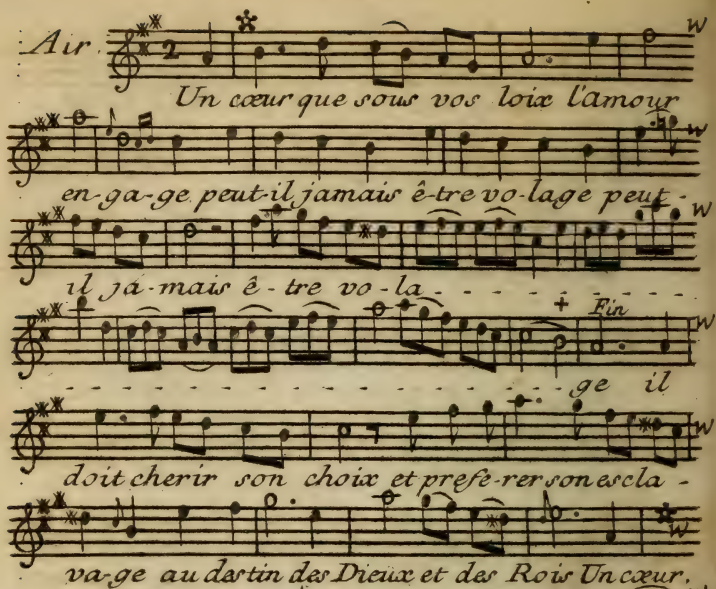 Air. 2
Un cœur que sous vos loix l'amour
en-ga-ge peut-il jamais ê-tre vo-lage peut-
il ja-mais ê-tre vo-la - - - - - -
+ Fin
- - - - - - - - - - - - - - - ge il
doit cherir son choix et prefe-rer son escla-
va-ge au destin des Dieux et des Rois Un cœur.